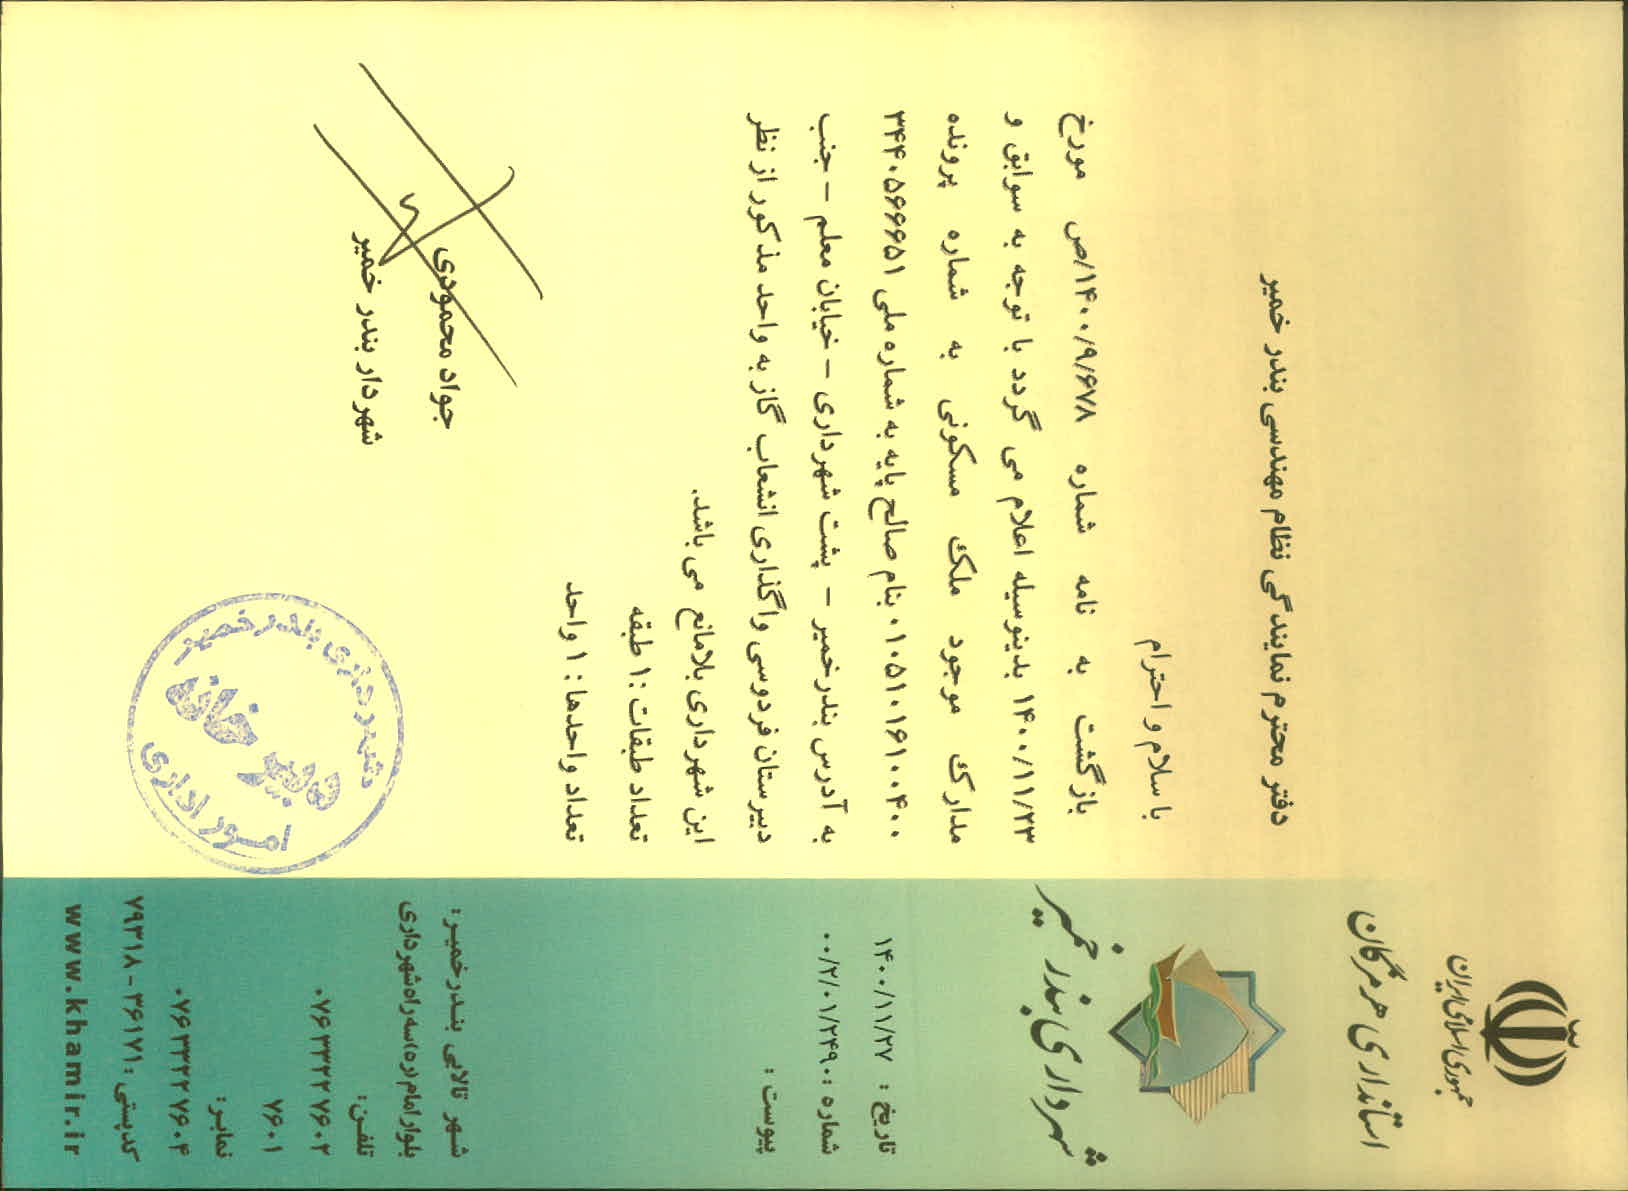 جمهوری اسلامی ایران
استانداری هرمزگان
شهرداری بندر خمیر
تاریخ : ۱۴۰۰/۱۱/۲۷
شماره : ۰۰/۲/۰۱/۲۴۹۰
پیوست :
دفتر محترم نمایندگی نظام مهندسی بندر خمیر
با سلام و احترام
بازگشت به نامه شماره ۱۴۰۰/۹/۶۷۸/ص مورخ
۱۴۰۰/۱۱/۲۳ بدینوسیله اعلام می گردد با توجه به سوابق و
مدارک موجود ملک مسکونی به شماره پرونده
۰۱۰۵۱۰۱۶۱۰۰۴۰۰ بنام صالح پایه به شماره ملی ۳۴۴۰۵۶۶۶۵۱
به آدرس بندرخمیر – پشت شهرداری – خیابان معلم – جنب
دبیرستان فردوسی واگذاری انشعاب گاز به واحد مذکور از نظر
این شهرداری بلامانع می باشد.
تعداد طبقات : ۱ طبقه
تعداد واحدها : ۱ واحد
جواد محمودی
شهردار بندر خمیر
شهرداری بندر خمیر
دبیرخانه
امور اداری
شهر تالابی بندرخمیر:
بلوار امام (ره) سه راه شهرداری
تلفن:
۰۷۶ ۳۳۲۲ ۷۶۰۲
۷۶۰۱
نمابر:
۰۷۶ ۳۳۲۲ ۷۶۰۴
کدپستی : ۳۶۱۷۱ - ۷۹۳۱۸
www.khamir.ir